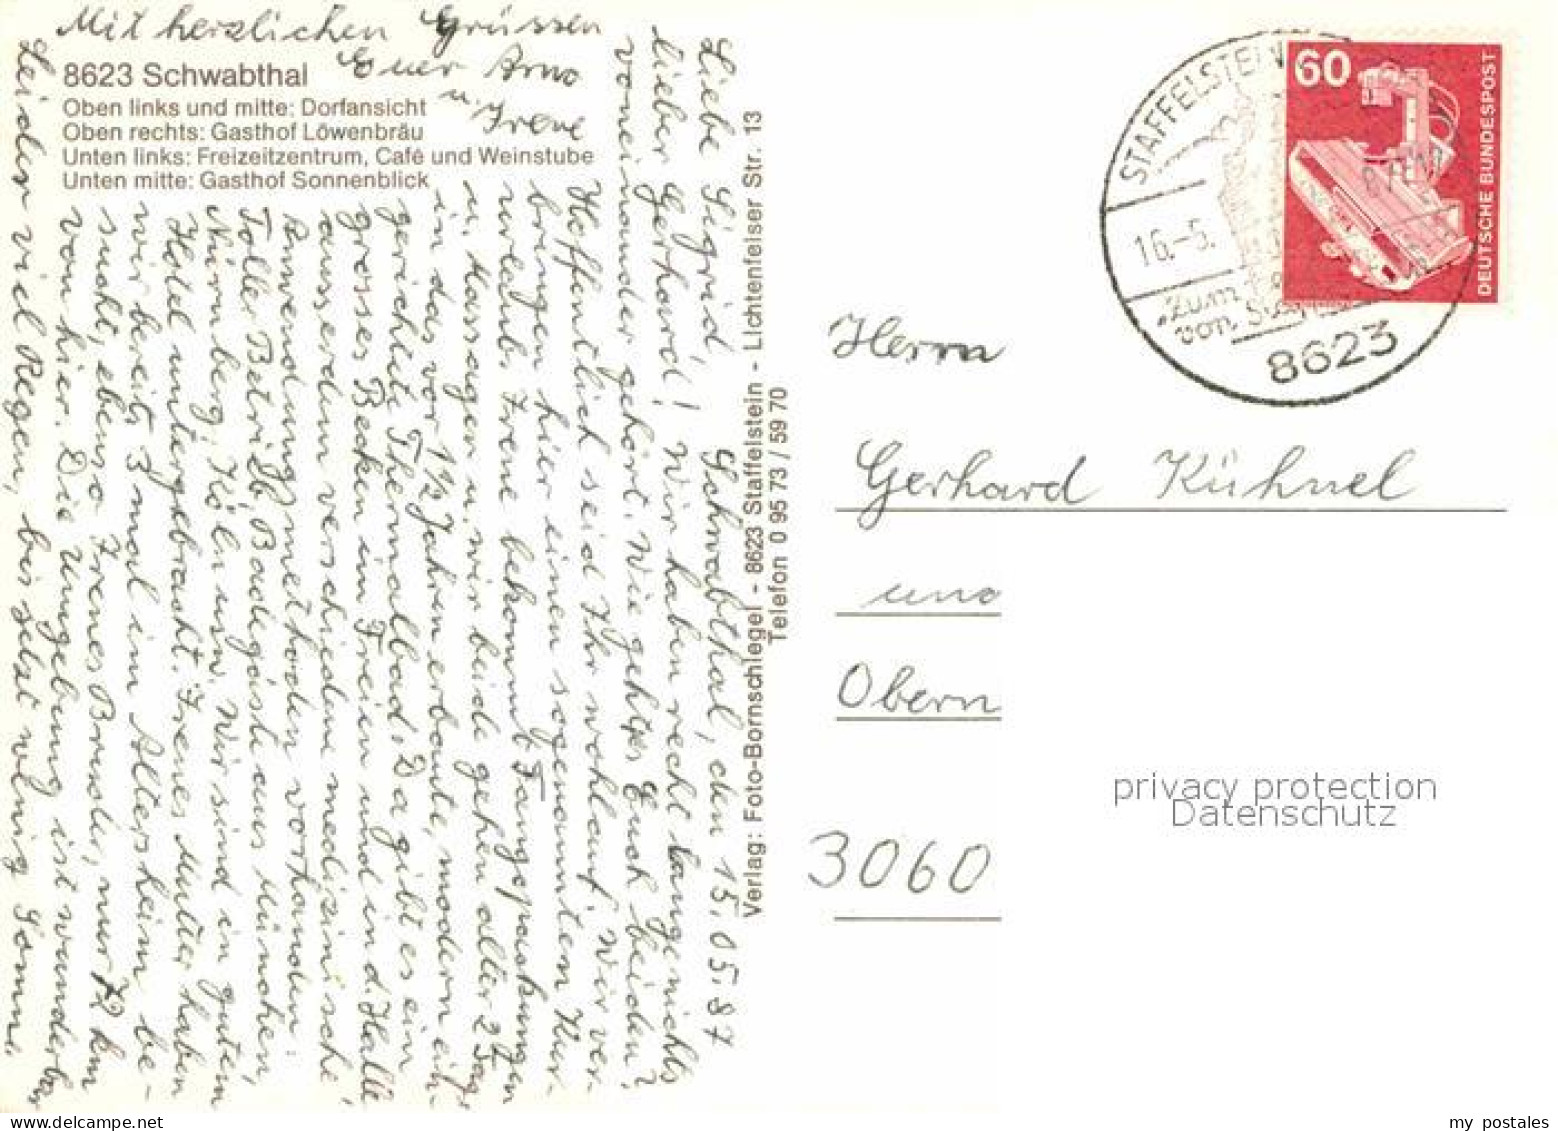 8623 Schwabthal
Oben links und mitte: Dorfansicht
Oben rechts: Gasthof Löwenbräu
Unten links: Freizeitzentrum, Café und Weinstube
Unten mitte: Gasthof Sonnenblick
Schwabthal, den 15.05.87
Liebe Sigrid,
lieber Gerhard! Wir haben recht lange nichts
voneinander gehört. Wie geht es Euch beiden?
Hoffentlich seid Ihr wohlauf. Wir ver-
bringen hier einen sogenannten Kur-
urlaub. Irene bekommt Fangopackungen
u. Massagen u. wir beide gehen alle 2 Tage
in das vor 1 1/2 Jahren erbaute, modern ein-
gerichtete Thermalbad. Da gibt es ein
grosses Becken im Freien und in d. Halle
ausserdem verschiedene medizinische
Anwendungsmethoden vorhanden.
Toller Betrieb. Badegäste aus München,
Nürnberg, Köln usw. Wir sind in gutem
Hotel untergebracht. Irenes Mutter haben
wir bereits 3 mal im Altersheim be-
sucht, ebenso Irenes Bruder, nur 12 km
von hier. Die Umgebung ist wunderbar
Leider viel Regen, bis jetzt wenig Sonne.
Mit herzlichen Grüssen
Euer Arno
u. Irene
Verlag: Foto-Bornschlegel - 8623 Staffelstein - Lichtenfelser Str. 13
Telefon 0 95 73 / 59 70
STAFFELSTEIN
16.-5.
"Zum
von
8623
60
DEUTSCHE BUNDESPOST
Herrn
Gerhard Kühnel
und
Obern
3060
privacy protection
Datenschutz
my postales